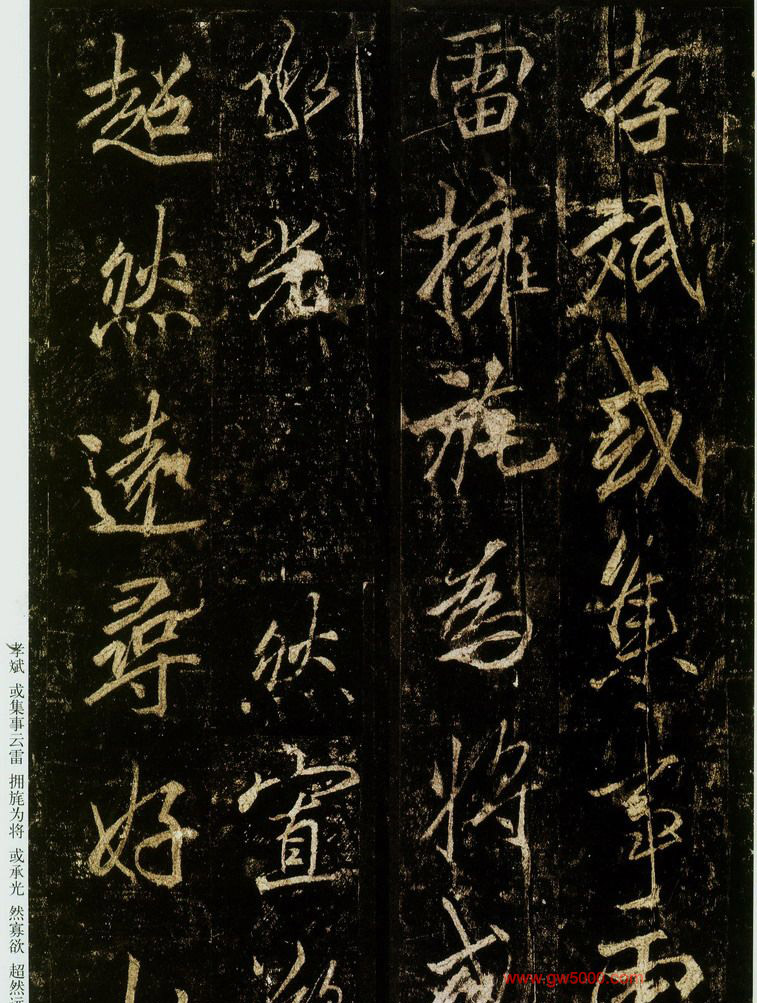 孝斌或集事雲
雷擁旄為將或
承光 然寡欲
超然遠尋好
孝斌 或集事云雷 拥旄为将 或承光 然寡欲 超然远
www.gw5000.com